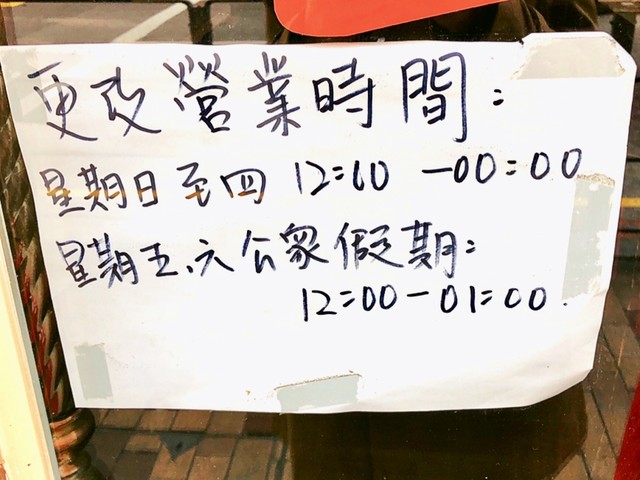 更改營業時間:
星期日至四 12:00 -00:00
星期五、六公衆假期:
12:00-01:00.